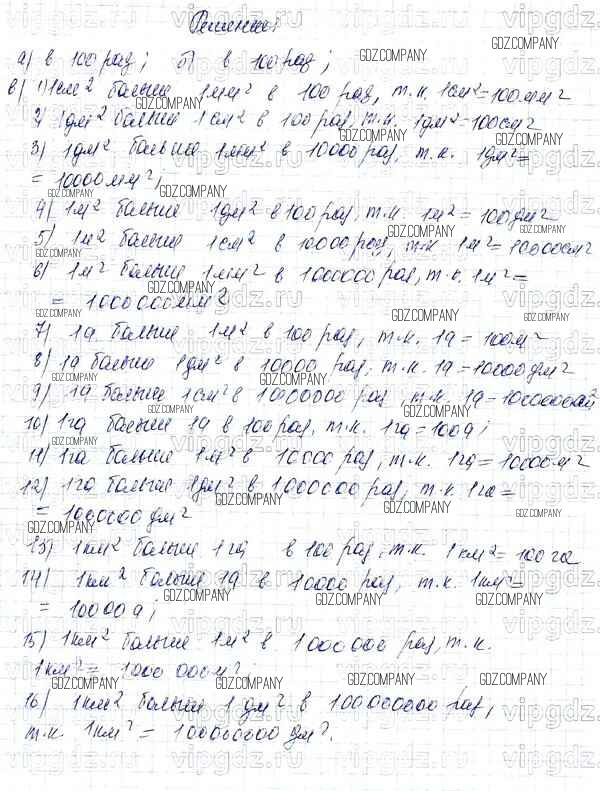 Решение:
а) в 100 раз; б) в 100 раз;
в) 1) 1см² больше 1мм² в 100 раз, т.к. 1см²=100мм²
2) 1дм² больше 1см² в 100 раз, т.к. 1дм²=100см²
3) 1дм² больше 1мм² в 10000 раз, т.к. 1дм²=
= 10000мм²;
4) 1м² больше 1дм² в 100 раз, т.к. 1м²=100дм²
5) 1м² больше 1см² в 10000 раз, т.к. 1м²=10000см²
6) 1м² больше 1мм² в 1000000 раз, т.к. 1м²=
= 1000000мм²
7) 1а больше 1м² в 100 раз, т.к. 1а=100м²
8) 1а больше 1дм² в 10000 раз, т.к. 1а=10000дм²
9) 1а больше 1см² в 1000000 раз, т.к. 1а=1000000см²
10) 1га больше 1а в 100 раз, т.к. 1га=100а;
11) 1га больше 1м² в 10000 раз, т.к. 1га=10000м²
12) 1га больше 1дм² в 1000000 раз, т.к. 1га=
= 1000000дм²
13) 1км² больше 1га в 100 раз, т.к. 1км²=100га
14) 1км² больше 1а в 10000 раз, т.к. 1км²=
= 10000а;
15) 1км² больше 1м² в 1000000 раз, т.к.
1км²= 1000000м²;
16) 1км² больше 1дм² в 100000000 раз,
т.к. 1км²= 100000000дм².